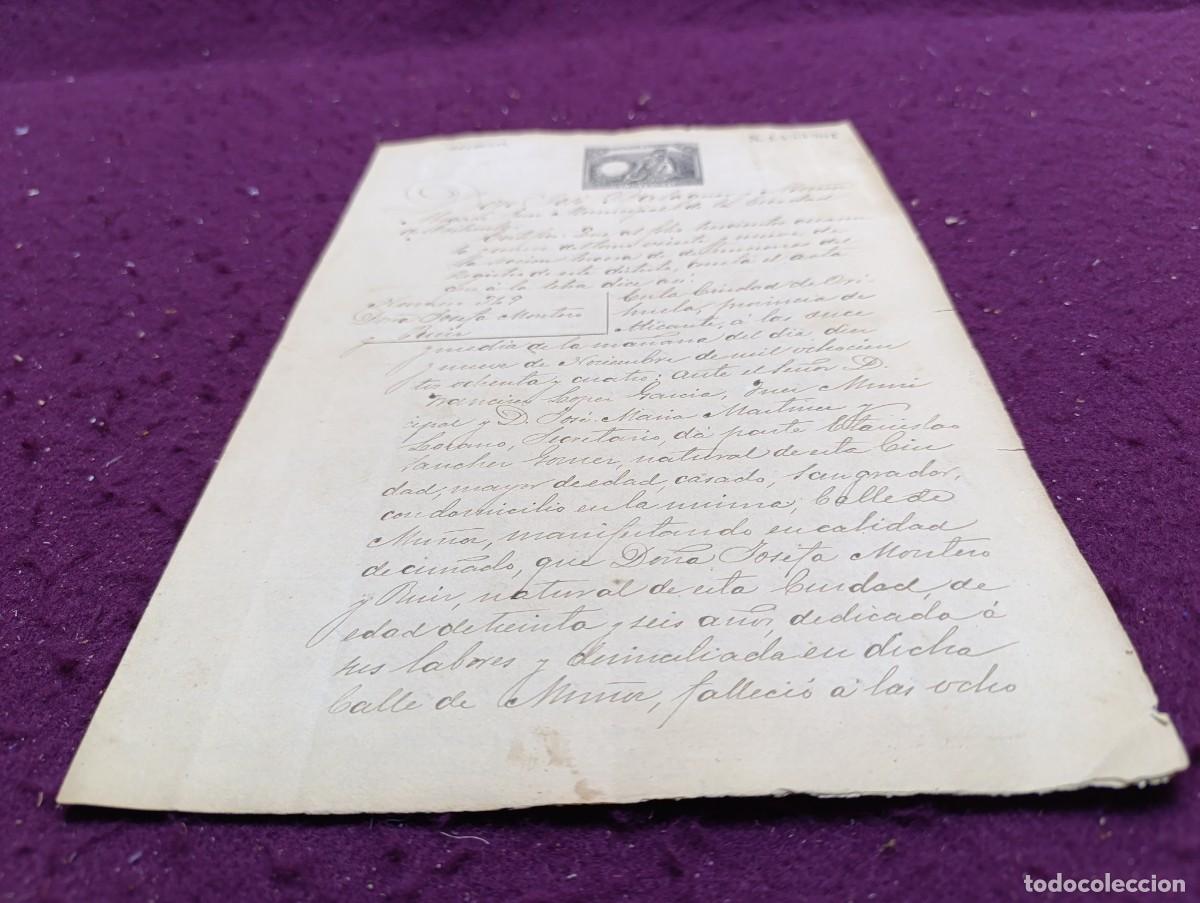 Juez Municipal de la Ciudad
Certifico: Que al folio
la sección tercera de defunciones del
Registro de este distrito, consta el acta
que á la letra dice así:
Número 349
Doña Josefa Montero
y Ruir
En la Ciudad de Ori
huela, provincia de
Alicante, á las once
y media de la mañana del dia diez
y nueve de Noviembre de mil ochocien
tos ochenta y cuatro; ante el Señor D.
Francisco Lopez Garcia, Juez Muni
cipal y D. José Maria Martinez y
Lozano, Secretario, dá parte Estanislao
Sanchez Gomez, natural de esta Ciu
dad, mayor de edad, casado, Sangrador,
con domicilio en la misma, Calle de
Muñoz, manifestando en calidad
de cuñado, que Doña Josefa Montero
y Ruiz, natural de esta Ciudad, de
edad de treinta y seis años, dedicada á
sus labores y domiciliada en dicha
Calle de Muñoz, falleció á las ocho
todocoleccion